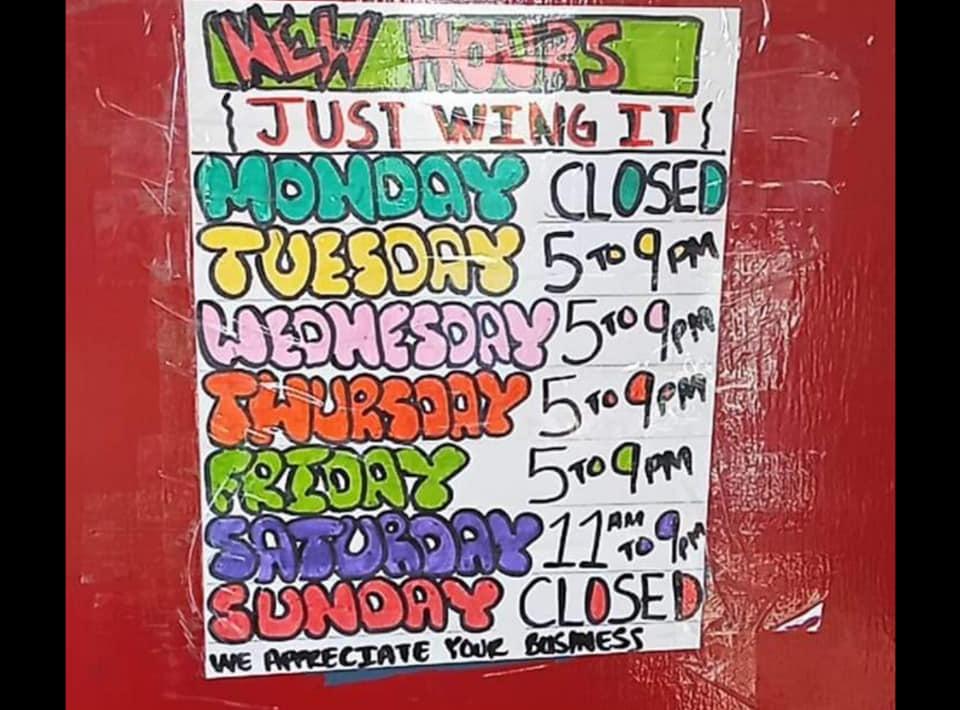 NEW HOURS
{JUST WING IT}
MONDAY CLOSED
TUESDAY 5 TO 9 PM
WEDNESDAY 5 TO 9 PM
THURSDAY 5 TO 9 PM
FRIDAY 5 TO 9 PM
SATURDAY 11 AM TO 9 PM
SUNDAY CLOSED
WE APPRECIATE YOUR BUSINESS